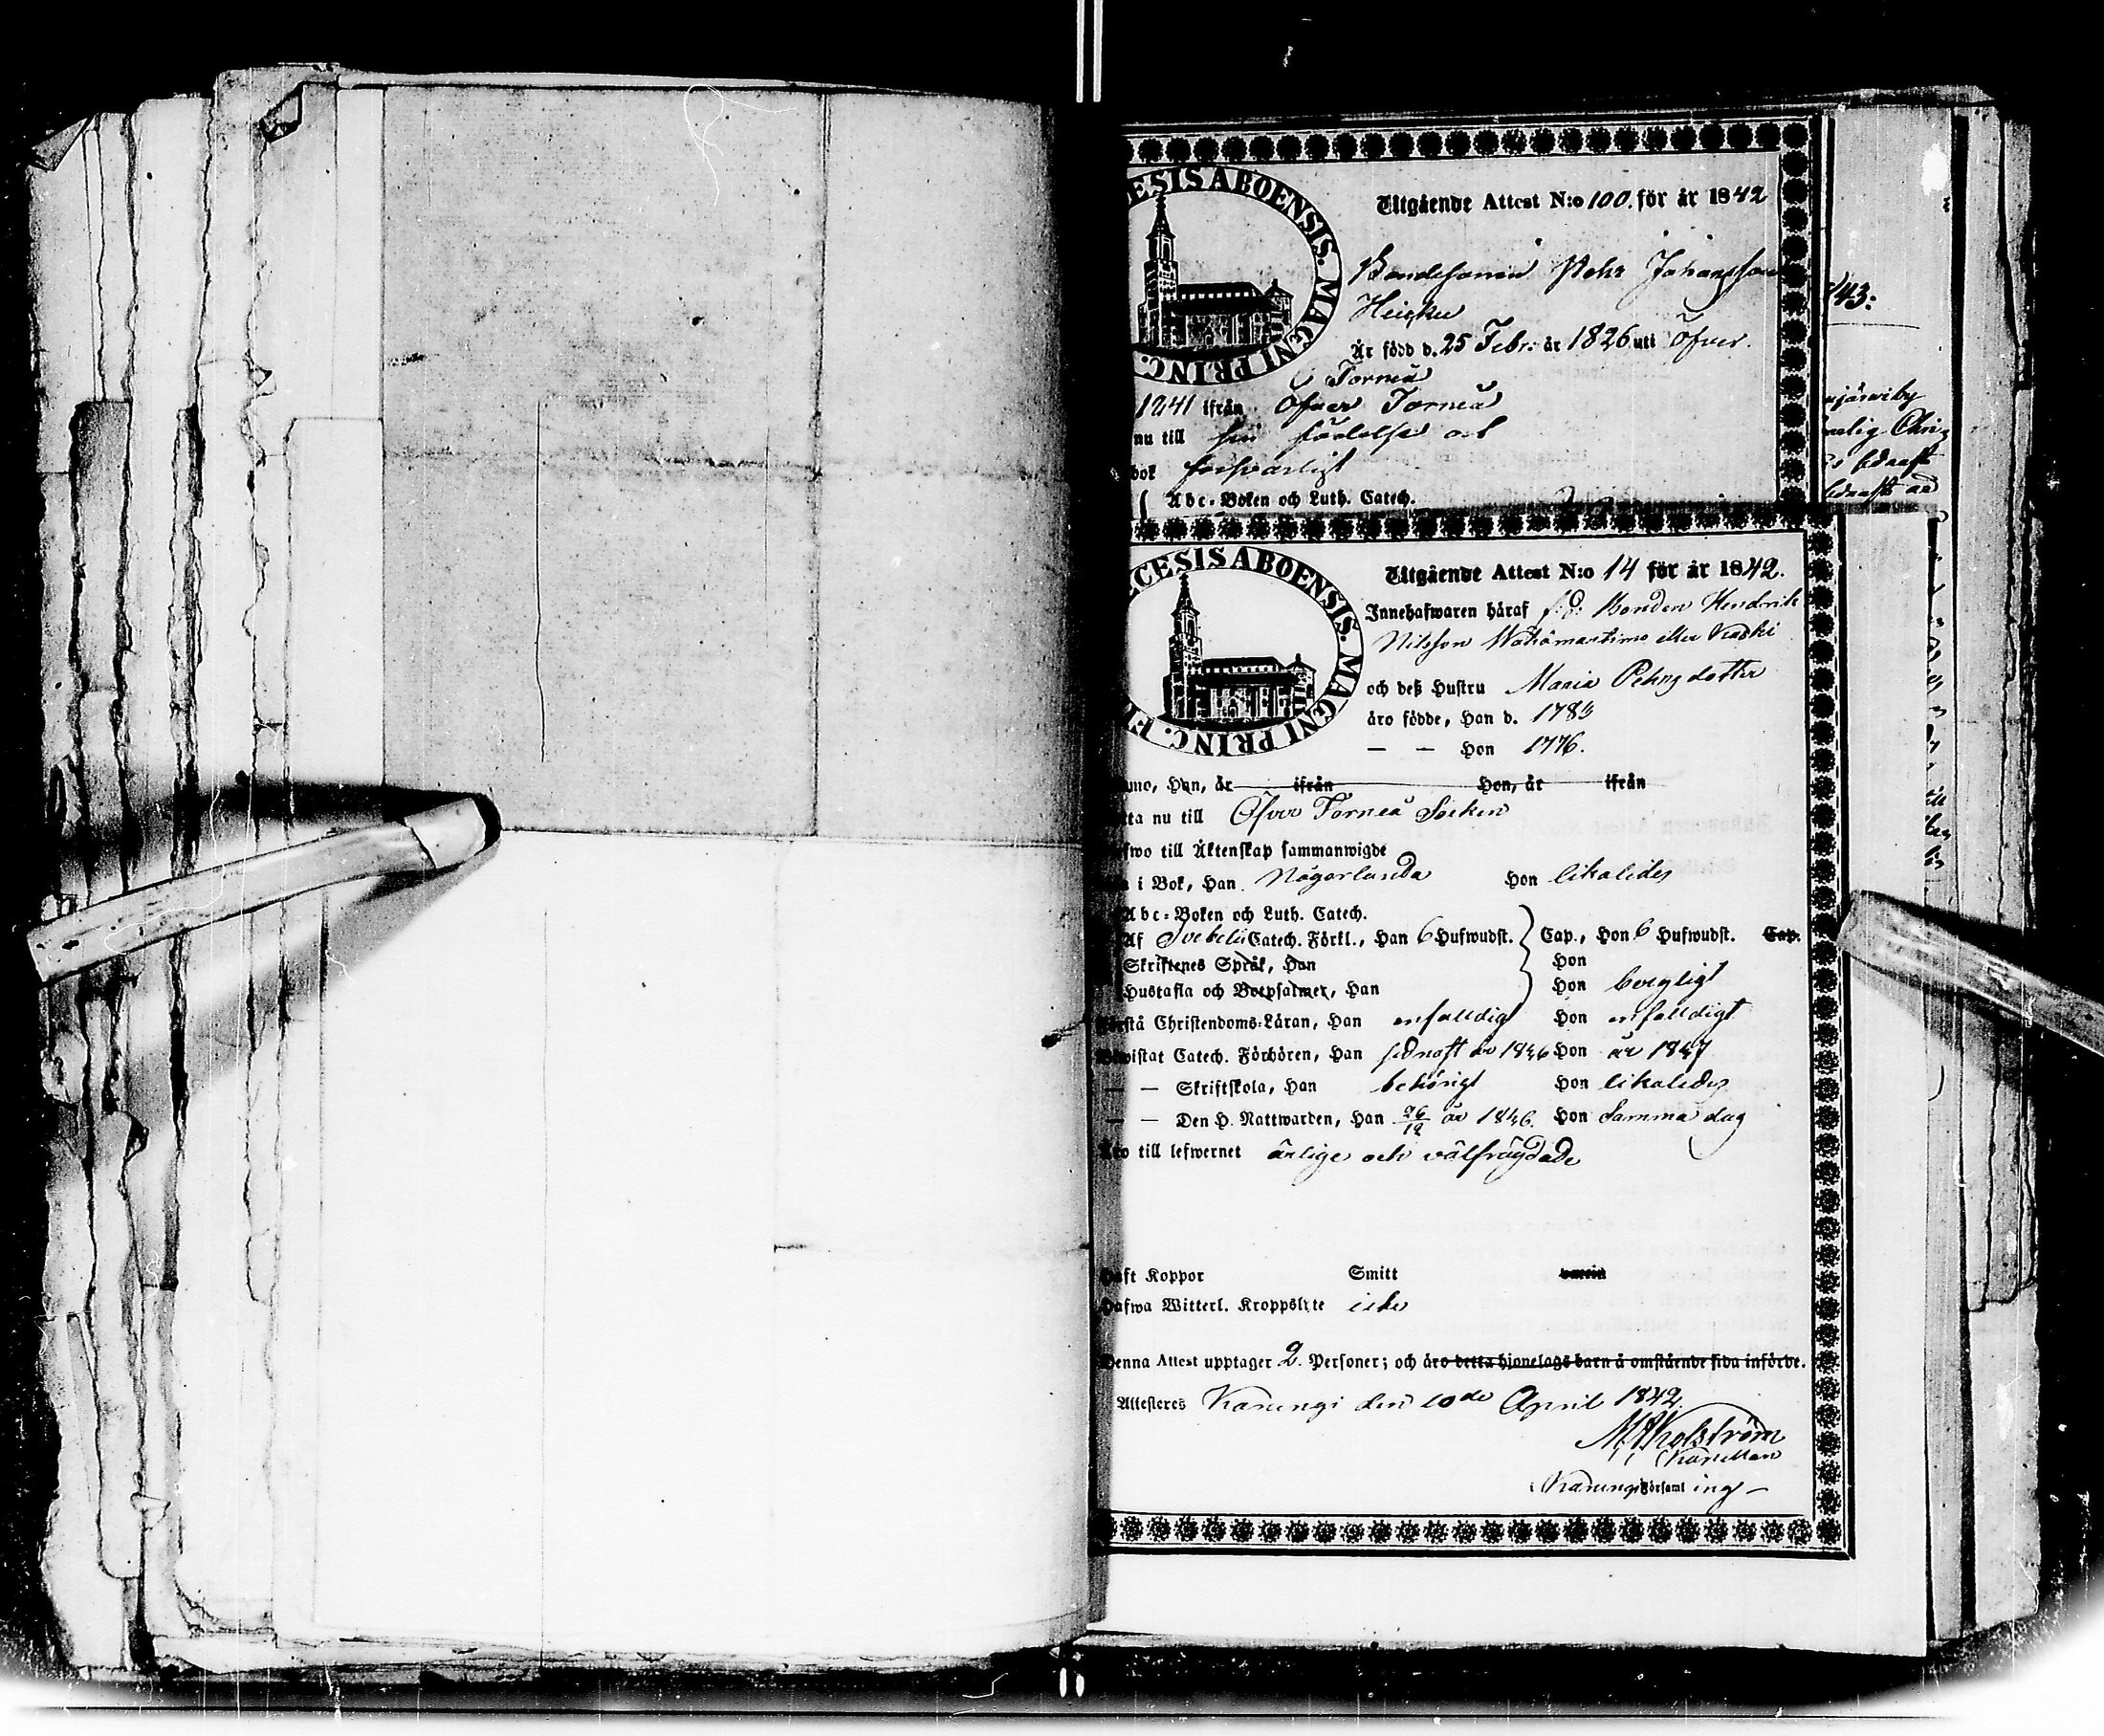 ESIS ABOENSIS. MAGNI PRINC.
Utgående Attest N:o 100. för år 1842
Bondesonen Pehr Johansson
Heicku
Är född d. 25 Febr. år 1826 uti Öfver
Torneå
1841 ifrån Öfver Torneå
nu till sin födelse ort
bok försvarligt
Abc-Boken och Luth. Catech.
43:
järwiby
CESIS ABOENSIS. MAGNI PRINC. F
Utgående Attest N:o 14 för år 1842.
Innehafwaren häraf f.d. Bonden Hendrik
Nilsson Wähämartimo eller Kaski
och deß Hustru Maria Pehrsdotter
äro födde, Han d. 1783
— — Hon 1776.
mo, Han, år ifrån Hon, år ifrån
tta nu till Öfver Torneå Socken
fwo till Äktenskap sammanwigde
i Bok, Han Någorlunda Hon likaledes
Abc-Boken och Luth. Catech.
Af Svebelii Catech. Förkl., Han 6 Hufwudst. Cap., Hon 6 Hufwudst. Cap.
Skriftenes Språk, Han Hon
Hustafla och Botpsalmer, Han Hon bergligt
Förstå Christendoms-Läran, Han enfalldigt Hon enfalldigt
Bewistat Catech. Förhören, Han sednast år 1836 Hon år 1837
— — Skriftskola, Han behörigt Hon likaledes
— — Den H. Nattwarden, Han 26/12 år 1836. Hon Samma dag
Äro till lefwernet ärlige och välfrägdade
Haft Koppor Smitt varit
Hafwa Witterl. Kroppslyte icke
Denna Attest upptager 2. Personer; och äro detta hjonelags barn å omstående sida införde.
Attesteres Karungi den 10de April 1842.
Karungi Församl ing –